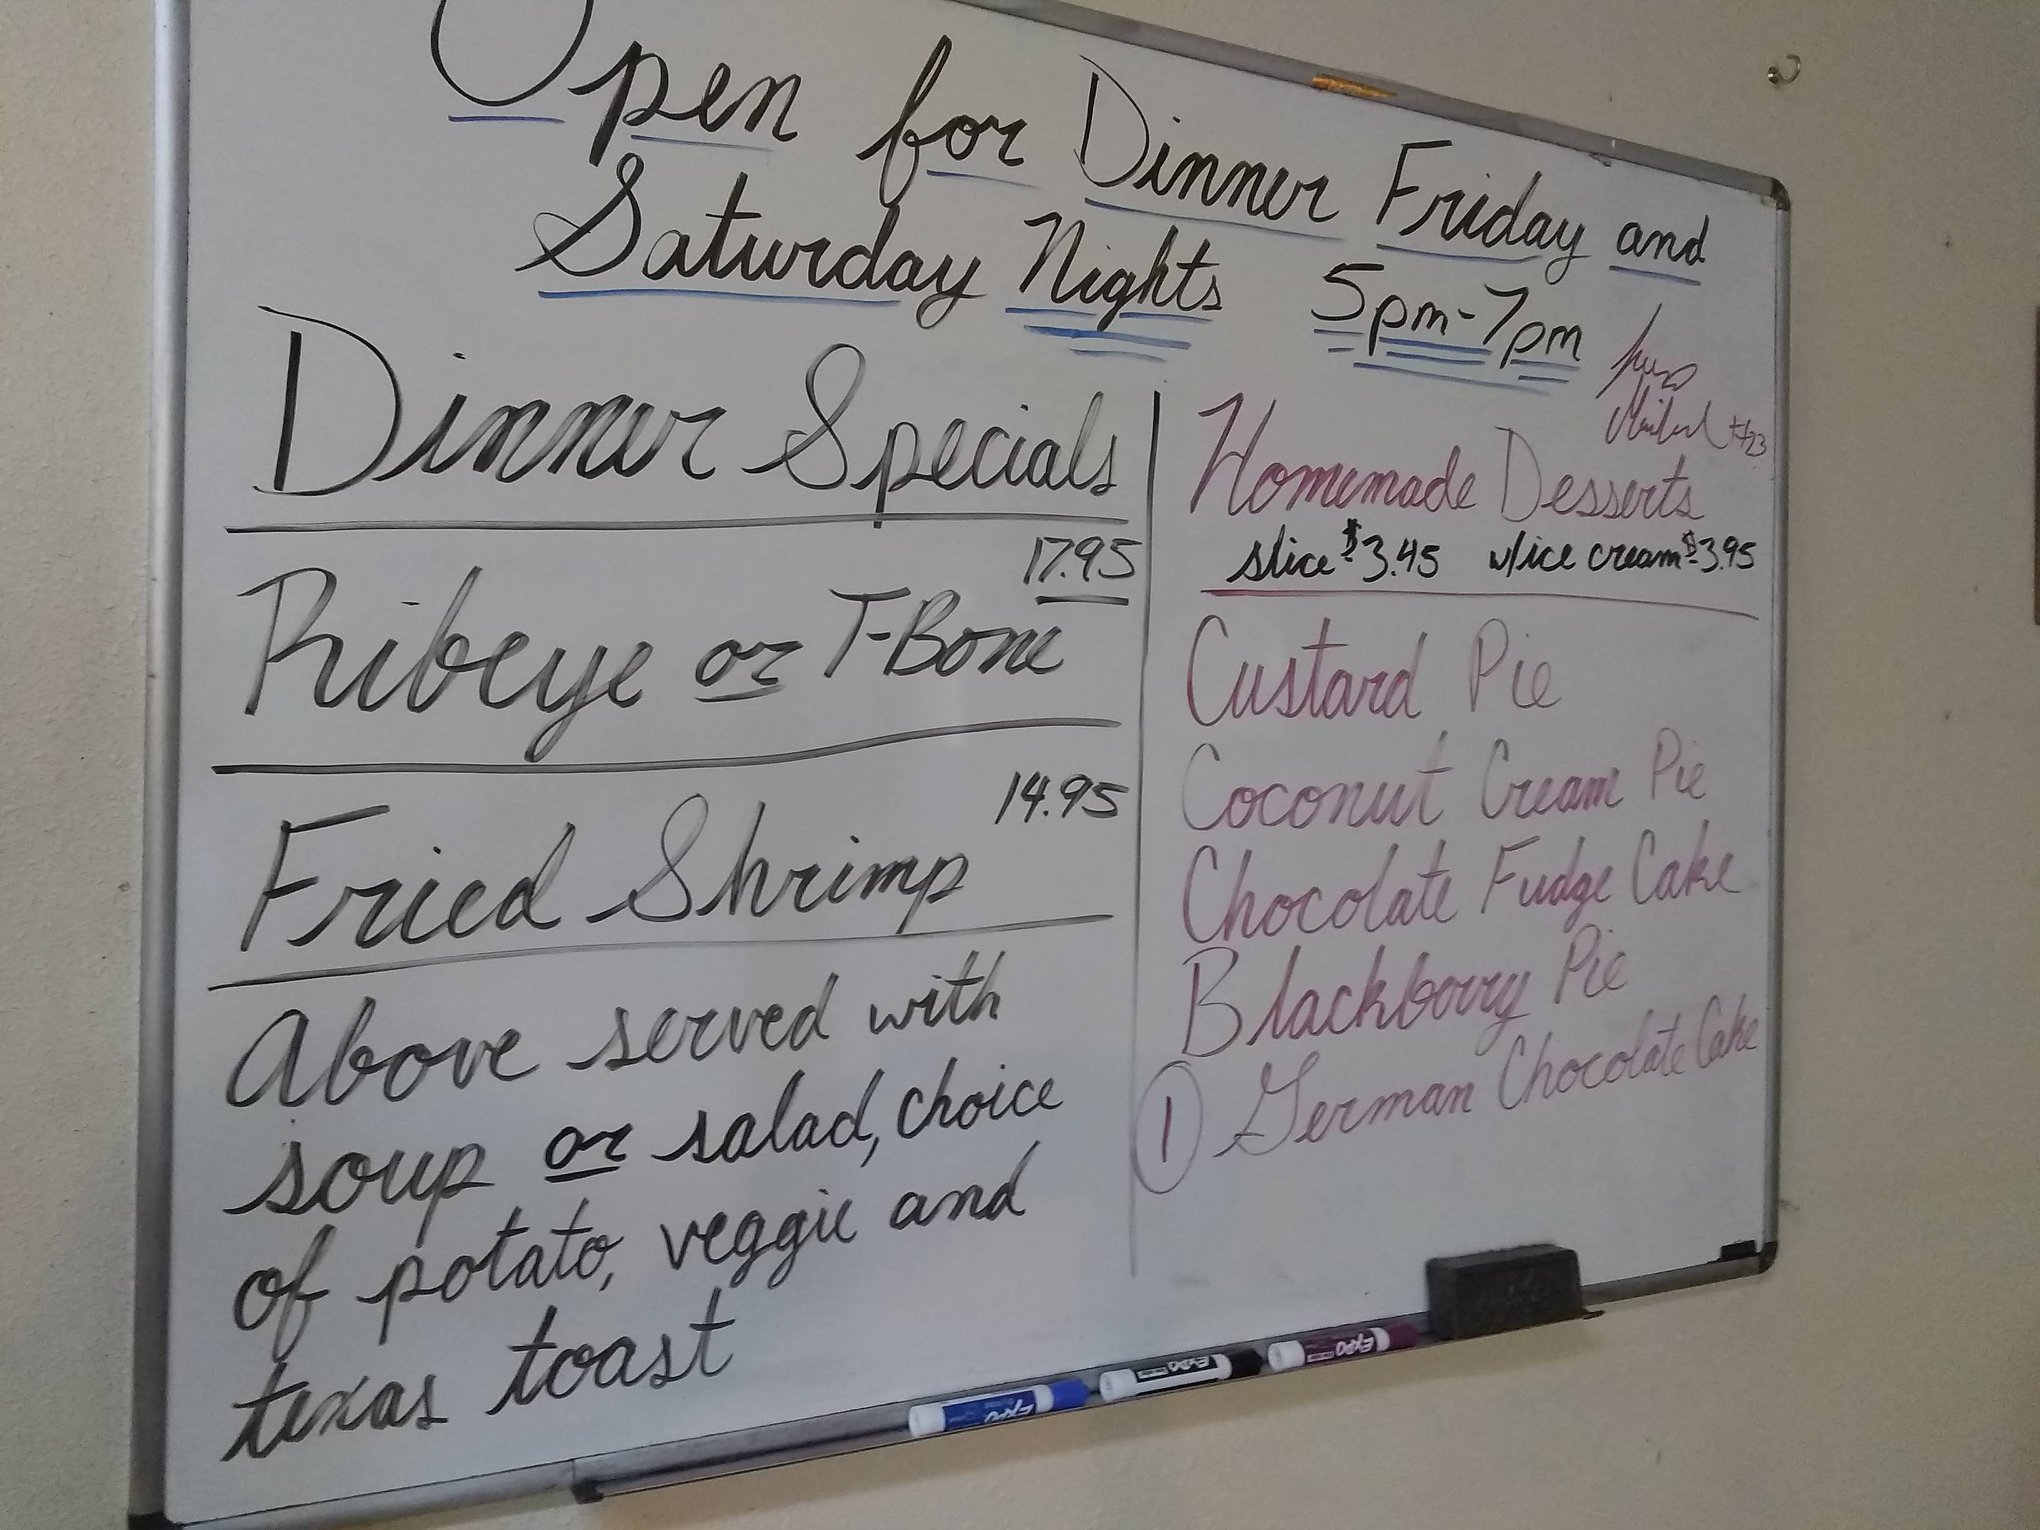 Open for Dinner Friday and
Saturday Nights 5pm-7pm
Dinner Specials
17.95
Ribeye or T-Bone
14.95
Fried Shrimp
Above served with
soup or salad, choice
of potato, veggie and
texas toast
Homemade Desserts
slice $3.45 w/ice cream $3.95
Custard Pie
Coconut Cream Pie
Chocolate Fudge Cake
Blackberry Pie
1 German Chocolate Cake
EXPO
EXPO
EXPO